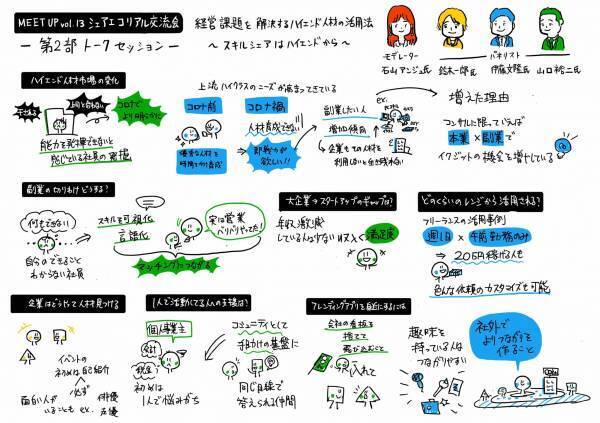 MEET UP vol.13 シェアエコリアル交流会
ー 第2部 トークセッション ー
経営課題を解決するハイエンド人材の活用法
〜 スキルシェアはハイエンドから 〜
モデレーター
石山アンジュ氏
パネリスト
鈴木一郎氏
伊藤文隆氏
山口裕二氏
ハイエンド人材市場の変化
上司と合わない
コロナで
より明らかに
能力を発揮できないと
感じている社員の実態
上流ハイクラスのニーズが高まってきている
コロナ前
優秀な人材を
時間をかけ育成
コロナ禍
人材育成できない
即戦力が
欲しい!!
副業したい人
増加傾向
企業もその人材を
利用しないと生き残れない
ex.
増えた理由
コンサルに限っていえば
本業×副業で
イグジットの機会も増やしている
副業の切りわけどうする?
何もできない
自分のできること
わからない社員
スキルを可視化
言語化
実は営業
バリバリやってた!
マッチングにつながる
大企業→スタートアップのギャップは?
年収激減
している人は少ない
満足度
どのくらいのレンジから活用される?
フリーランスの活用事例
週1日×午前勤務のみ
→20万円稼げる人も
色んな依頼のカスタマイズも可能
企業はどうやって人材見つける
イベントの
初めは自己紹介
必ず
面白い人が
いることも
ex.
俳優
声優
1人で活動してる人への支援は?
個人事業主
会計
税金?
初めは
1人で悩みがち
コミュニティとして
手助けの基盤に
同じ目線で
答えられる仲間
アレンディングアプリを身近にするには
会社の看板を
捨てて
飛び込むこと
入れて
趣味を
持っている人は
つながりやすい
社外で
よりつながりを
作ること